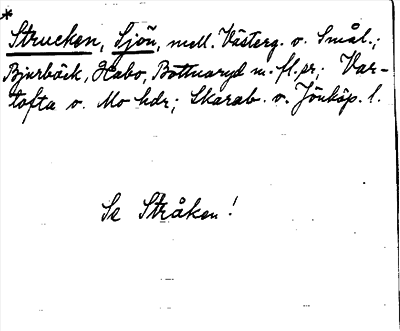 *
Strucken, Sjön, mell. Västerg. o. Smål.;
Bjurbäck, Habo, Bottnaryd m. fl. sr; Var-
tofta o. Mo hdr; Skarab. o. Jönköp. l.
Se Stråken!